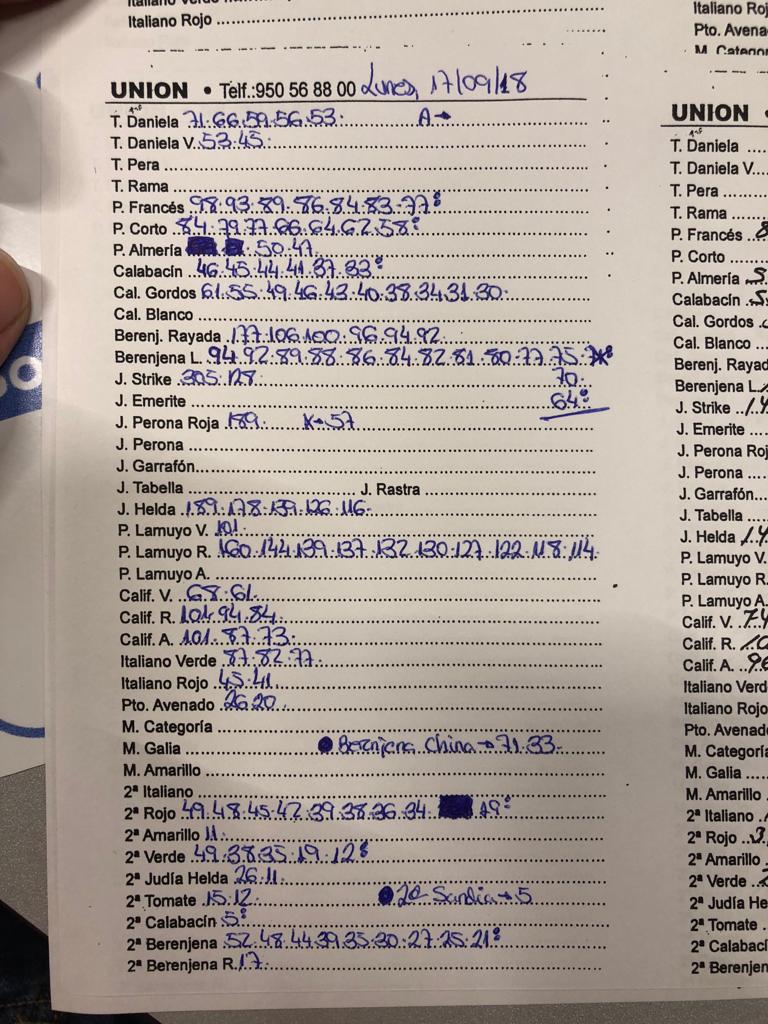 Italiano Rojo
UNION • Telf.:950 56 88 00 Lunes, 17/09/18
T. Daniela 71.66.59.56.53. A→
T. Daniela V. 53.45.
T. Pera
T. Rama
P. Francés 98.93.89.86.84.83.77
P. Corto 84.79.77.66.64.62.58
P. Almería 50.47
Calabacín 46.45.44.41.37.33
Cal. Gordos 61.55.49.46.43.40.38.34.31.30.
Cal. Blanco
Berenj. Rayada 177.106.100.96.94.92.
Berenjena L. 94.92.89.88.86.84.82.81.80.77.75.
J. Strike 305.128. 70.
J. Emerite 64
J. Perona Roja 189. K→57
J. Perona
J. Garrafón
J. Tabella J. Rastra
J. Helda 189.178.139.126.116.
P. Lamuyo V. 101.
P. Lamuyo R. 160.144.139.137.132.130.127.122.118.114.
P. Lamuyo A.
Calif. V. 68.61.
Calif. R. 101.94.84.
Calif. A. 101.87.73.
Italiano Verde 87.82.77.
Italiano Rojo 45.41.
Pto. Avenado 26.20.
M. Categoría
M. Galia Berenjena China→71.33.
M. Amarillo
2ª Italiano
2ª Rojo 49.48.45.42.39.38.36.34. 19
2ª Amarillo 11.
2ª Verde 49.38.35.19.12
2ª Judía Helda 26.11.
2ª Tomate 15.12. 2ª Sandia→5
2ª Calabacín 5
2ª Berenjena 52.48.44.39.35.30.27.25.21
2ª Berenjena R. 17.
Pto. Avena
UNION
T. Daniela
T. Daniela V.
T. Pera
T. Rama
P. Francés
P. Corto
P. Almería
Calabacín
Cal. Gordos
Cal. Blanco
Berenj. Rayad
Berenjena L.
J. Strike
J. Emerite
J. Perona Roj
J. Perona
J. Garrafón
J. Tabella
J. Helda
P. Lamuyo V.
P. Lamuyo R.
P. Lamuyo A.
Calif. V.
Calif. R.
Calif. A.
Italiano Verd
Italiano Rojo
Pto. Avenad
M. Categoría
M. Galia
M. Amarillo
2ª Italiano
2ª Rojo
2ª Amarillo
2ª Verde
2ª Judía He
2ª Tomate
2ª Calabací
2ª Berenjen